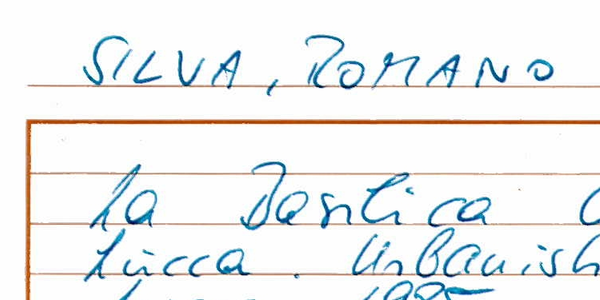 SILVA, ROMANO
La Basilica
Lucca. Urbanist
1985